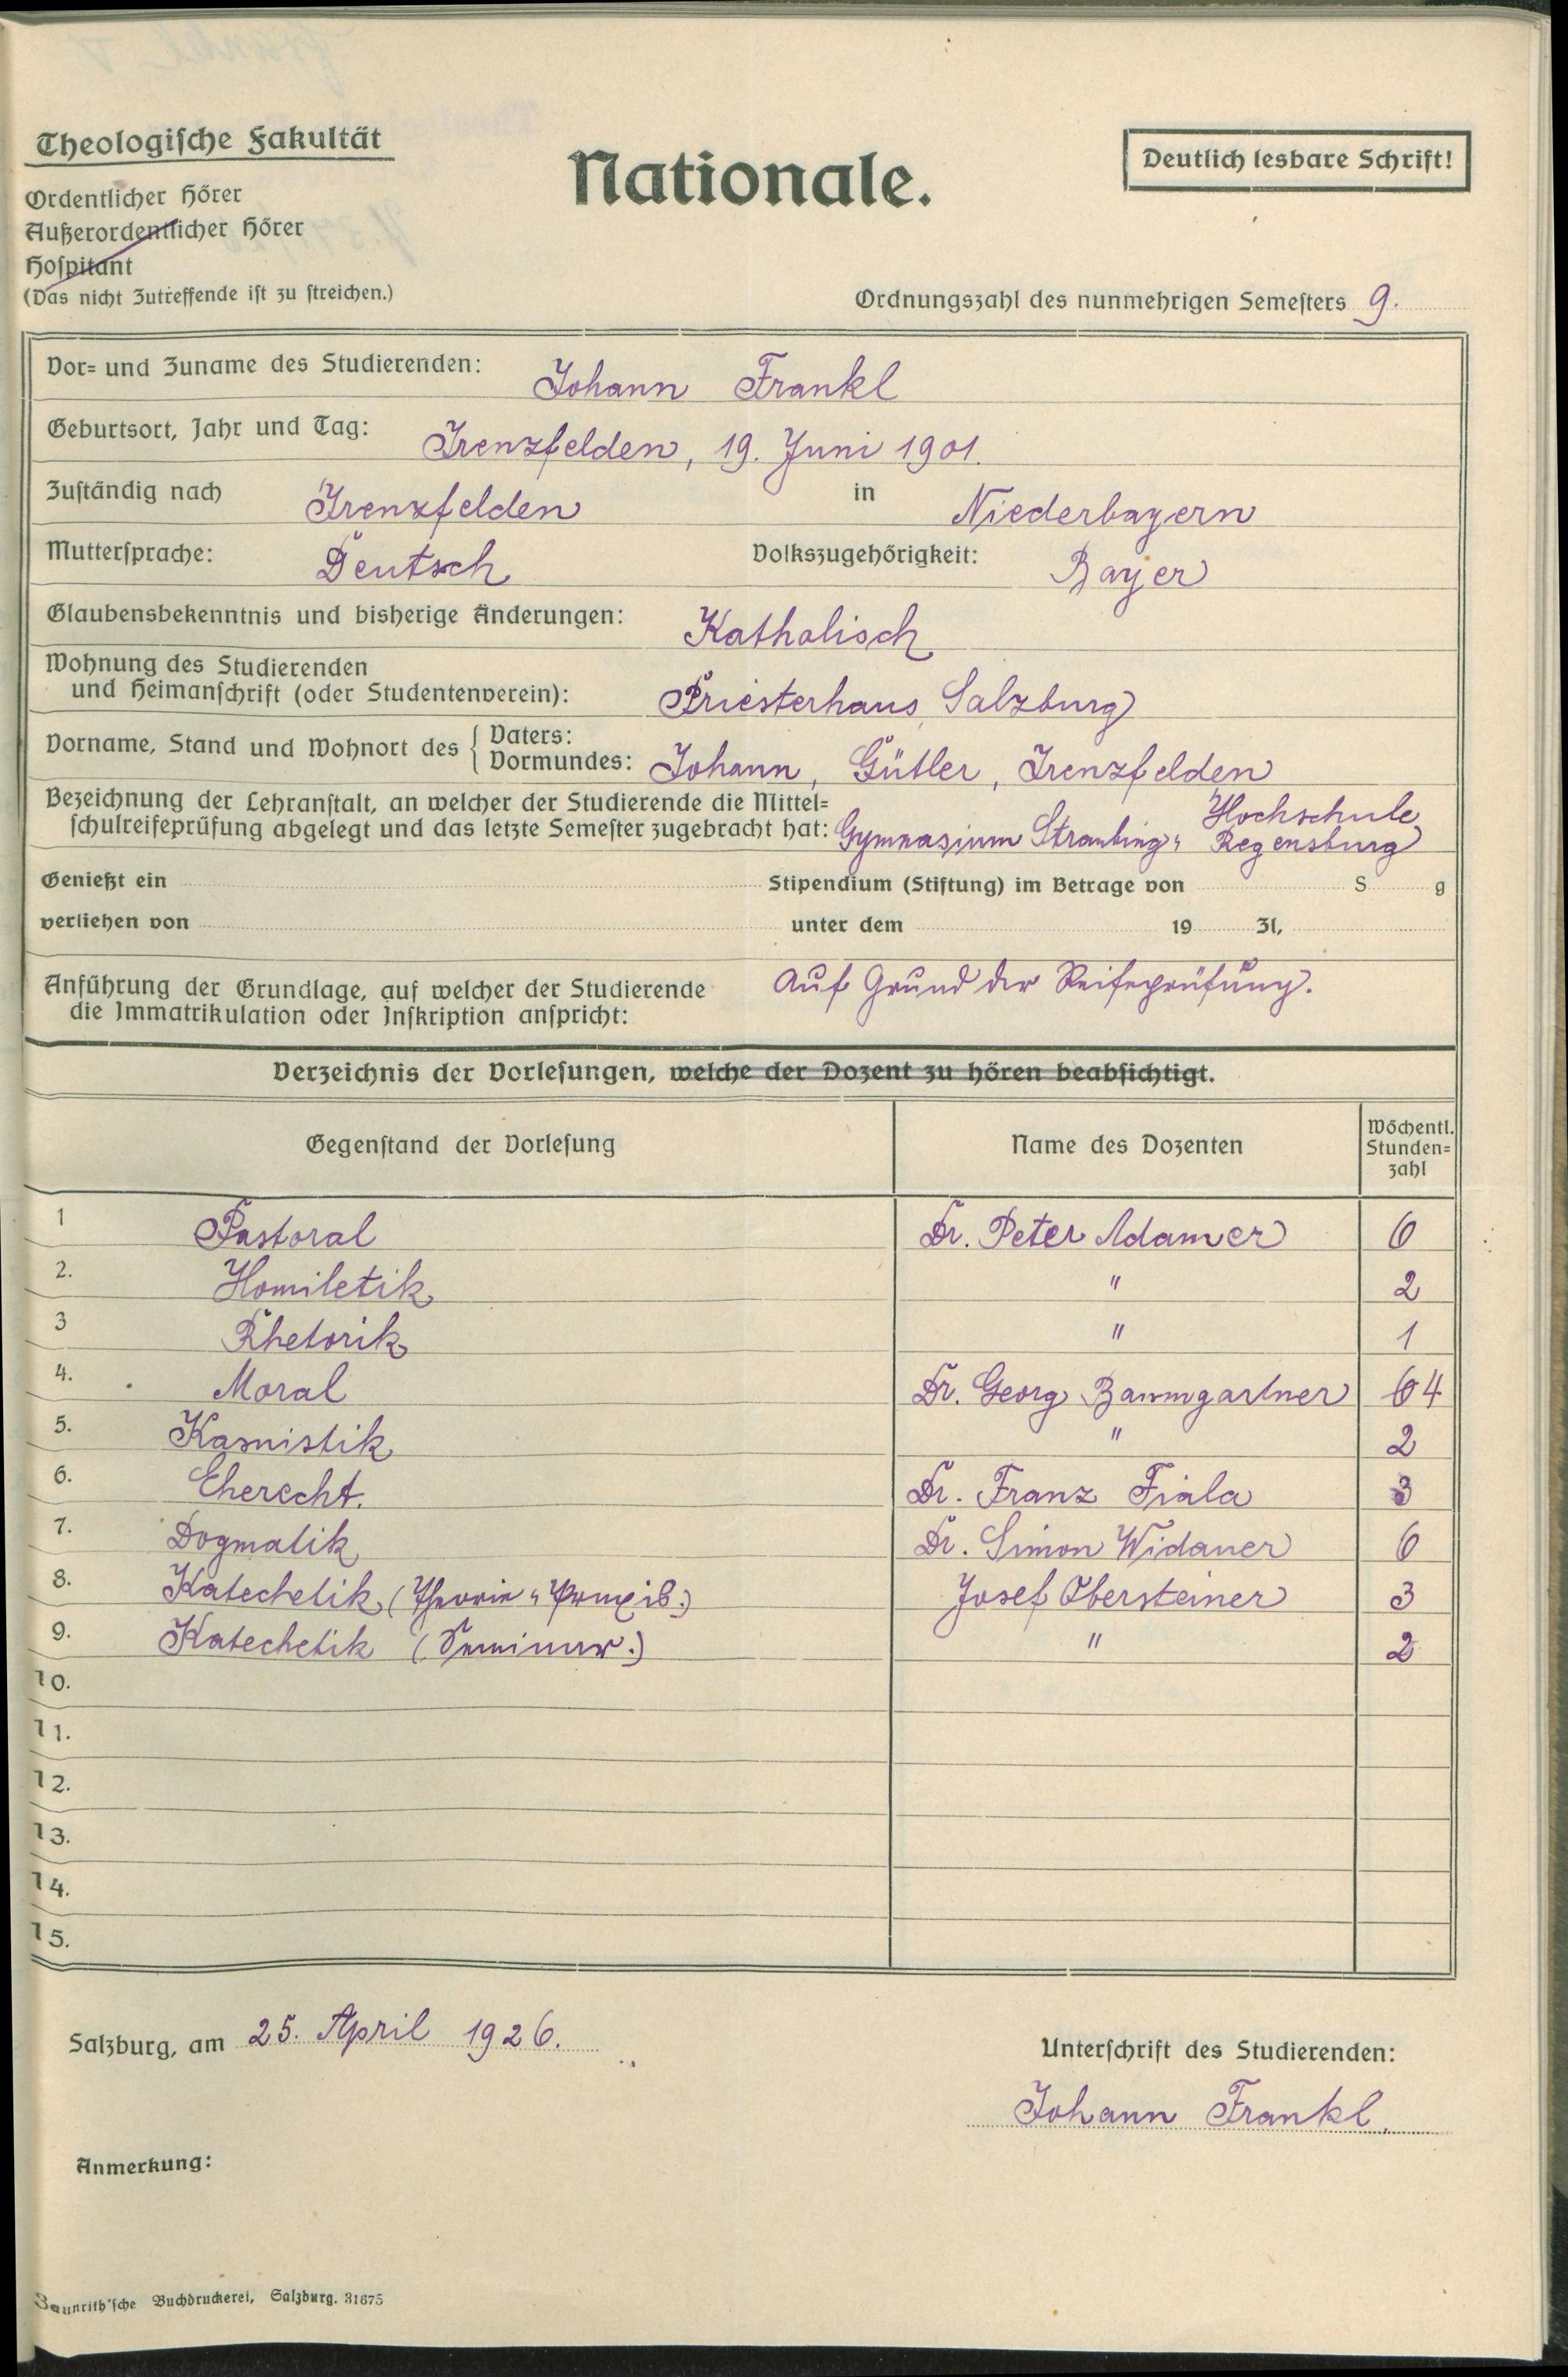 Theologische Fakultät
Nationale.
Deutlich lesbare Schrift!
Ordentlicher Hörer
Außerordentlicher Hörer
Hospitant
(Das nicht Zutreffende ist zu streichen.)
Ordnungszahl des nunmehrigen Semesters 9.
Vor- und Zuname des Studierenden: Johann Frankl
Geburtsort, Jahr und Tag: Irenzfelden, 19. Juni 1901.
Zuständig nach Irenzfelden in Niederbayern
Muttersprache: Deutsch Volkszugehörigkeit: Bayer
Glaubensbekenntnis und bisherige Änderungen: Katholisch
Wohnung des Studierenden
und Heimanschrift (oder Studentenverein): Priesterhaus, Salzburg
Vorname, Stand und Wohnort des { Vaters:
Vormundes: Johann, Gütler, Irenzfelden
Bezeichnung der Lehranstalt, an welcher der Studierende die Mittel-
schulreifeprüfung abgelegt und das letzte Semester zugebracht hat: Gymnasium Straubing, Hochschule Regensburg
Genießt ein Stipendium (Stiftung) im Betrage von S g
verliehen von unter dem 19 Zl,
Anführung der Grundlage, auf welcher der Studierende
die Immatrikulation oder Inskription anspricht: Auf Grund der Reifeprüfung.
Verzeichnis der Vorlesungen, welche der Dozent zu hören beabsichtigt.
Gegenstand der Vorlesung Name des Dozenten Wöchentl. Stunden-zahl
1 Pastoral Dr. Peter Adamer 6
2. Homiletik " 2
3 Rhetorik " 1
4. Moral Dr. Georg Baumgartner 6 4
5. Kasuistik " 2
6. Eherecht. Dr. Franz Fiala 3
7. Dogmatik Dr. Simon Widauer 6
8. Katechetik (Theorie u Praxis.) Josef Obersteiner 3
9. Katechetik (Seminar.) " 2
10.
11.
12.
13.
14.
15.
Salzburg, am 25. April 1926.
Unterschrift des Studierenden:
Johann Frankl.
Anmerkung:
Zaunrith'sche Buchdruckerei, Salzburg. 31675